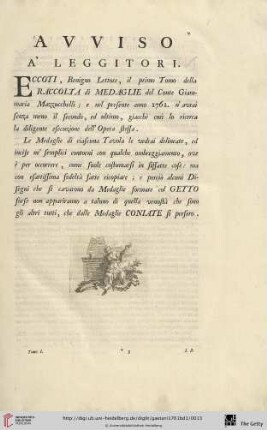 AVVISO
A' LEGGITORI.
ECCOTI, Benigno Lettore, il primo Tomo della
RACCOLTA di MEDAGLIE del Conte Giam-
maria Mazzucchelli; e nel presente anno 1762. n'avrai
senza meno il secondo, ed ultimo, giacchè così lo ricerca
la diligente esecuzione dell'Opera stessa.
Le Medaglie di ciascuna Tavola le vedrai delineate, ed
incise ne' semplici contorni con qualche ombreggiamento, ove
è per occorrere, come suole costumarsi in siffatte cose: ma
con esattissima fedeltà fatte ricopiare; e perciò alcuni Di-
segni che si cavarono da Medaglie formate col GETTO
forse non appariranno a taluno di quella venustà che sono
gli altri tutti, che dalle Medaglie CONIATE si presero.
Tomo I.
http://digi.ub.uni-heidelberg.de/diglit/gaetani1761bd1/0013
© Universitätsbibliothek Heidelberg
The Getty